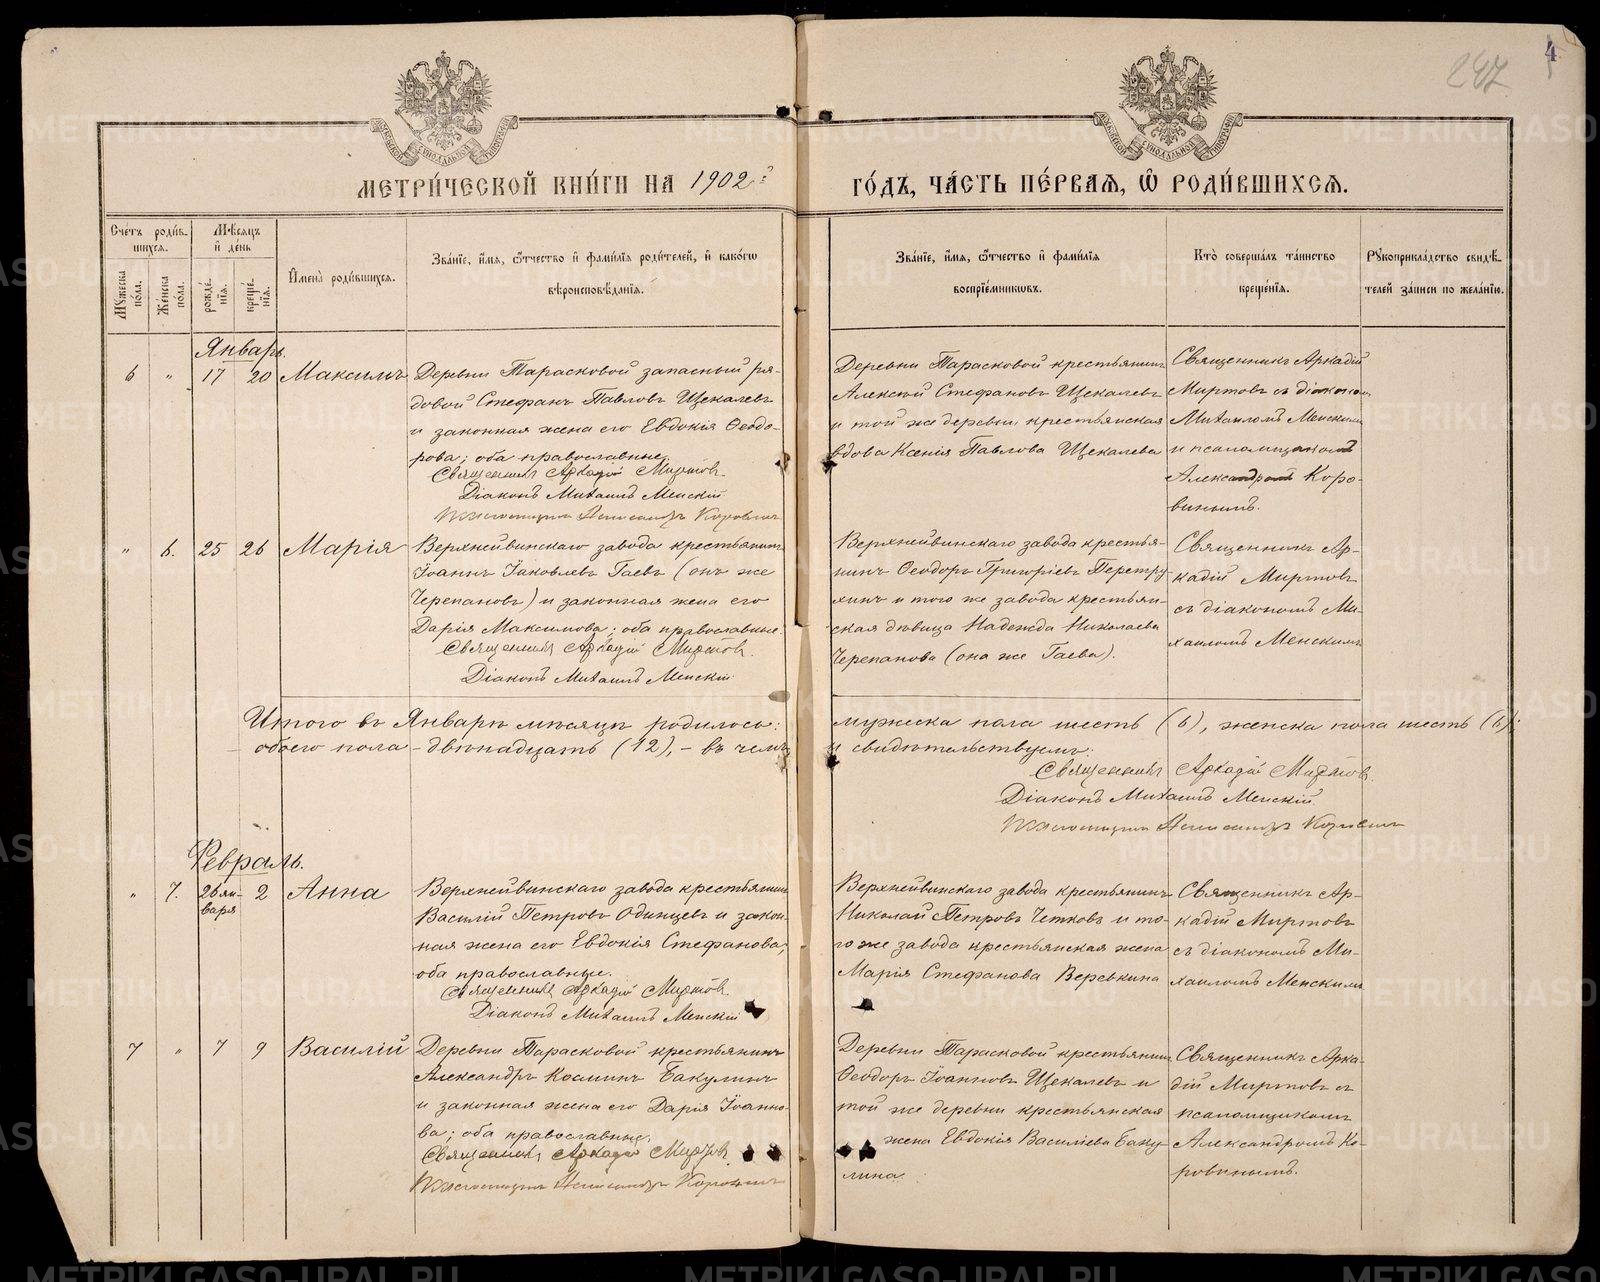 247
4
МЕТРИ́ЧЕСКОЙ КНИ́ГИ НА 1902й
ГО́ДЪ, ЧА́СТЬ ПЕ́РВАЯ, Ѡ РОДИ́ВШИХСЯ.
Сче́тъ роди́в-
шихся.
Мѣ́сяцъ
и҆ де́нь
Му́жеска
по́ла.
Же́нска
по́ла.
рожде́-
нїя.
креще́-
нїя.
И҆мена̀ роди́вшихся.
Зва́нїе, и҆́мя, ѻ҆́тчество и҆ фами́лїя роди́телей, и҆ како́гѡ
вѣроисповѣ́данїя.
Зва́нїе, и҆́мя, ѻ҆́тчество и҆ фами́лїя
воспрїе́мникѡвъ.
Кто̀ соверша́лъ та́инство
креще́нїя.
Рꙋкоприкла́дство свидѣ́-
телей за́писи по жела́нїю.
Январь.
6 " 17 20 Максимъ
Деревни Тарасковой запасный ря-
довой Стефанъ Павловъ Щекалевъ
и законная жена его Евдокія Ѳеодо-
рова; оба православные.
Священникъ Аркадій Миртовъ
Діаконъ Михаилъ Менскій
Псаломщикъ Александръ Коровинъ
Деревни Тарасковой крестьянинъ
Алексѣй Стефановъ Щекалевъ
и той же деревни крестьянская
вдова Ксенія Павлова Щекалева
Священникъ Аркадій
Миртовъ съ діакономъ
Михаиломъ Менскимъ
и псаломщикомъ
Александромъ Коро-
винымъ.
" 6. 25 26 Марія
Верхнейвинскаго завода крестьянинъ
Іоаннъ Іаковлевъ Гаевъ (онъ же
Черепановъ) и законная жена его
Дарія Максимова; оба православные.
Священникъ Аркадій Миртовъ.
Діаконъ Михаилъ Менскій
Верхнейвинскаго завода крестья-
нинъ Ѳеодоръ Григоріевъ Перетру-
хинъ и того же завода крестьян-
ская дѣвица Надежда Николаева
Черепанова (она же Гаева).
Священникъ Ар-
кадій Миртовъ
съ діакономъ Ми-
хаиломъ Менскимъ
Итого въ Январѣ мѣсяцѣ родилось: мужеска пола шесть (6), женска пола шесть (6);
обоего пола - двѣнадцать (12), - въ чемъ и свидѣтельствуемъ:
Священникъ Аркадій Миртовъ.
Діаконъ Михаилъ Менскій.
Псаломщикъ Александръ Коровинъ
Февраль.
" 7. 26 ян- 2 Анна
варя
Верхнейвинскаго завода крестьянинъ
Василій Петровъ Одинцевъ и закон-
ная жена его Евдокія Стефанова,
оба православные.
Священникъ Аркадій Миртовъ.
Діаконъ Михаилъ Менскій
Верхнейвинскаго завода крестьянинъ
Николай Петровъ Четковъ и то-
го же завода крестьянская жена
Марія Стефанова Веревкина
Священникъ Ар-
кадій Миртовъ
съ діакономъ Ми-
хаиломъ Менскимъ
7 " 7 9 Василій
Деревни Тарасковой крестьянинъ
Александръ Косминъ Бакулинъ
и законная жена его Дарія Іоанно-
ва; оба православные.
Священникъ Аркадій Миртовъ.
Псаломщикъ Александръ Коровинъ
Деревни Тарасковой крестьянинъ
Ѳеодоръ Іоанновъ Щекалевъ и
той же деревни крестьянская
жена Евдокія Василіева Баку-
лина.
Священникъ Арка-
дій Миртовъ съ
псаломщикомъ
Александромъ Ко-
ровинымъ.